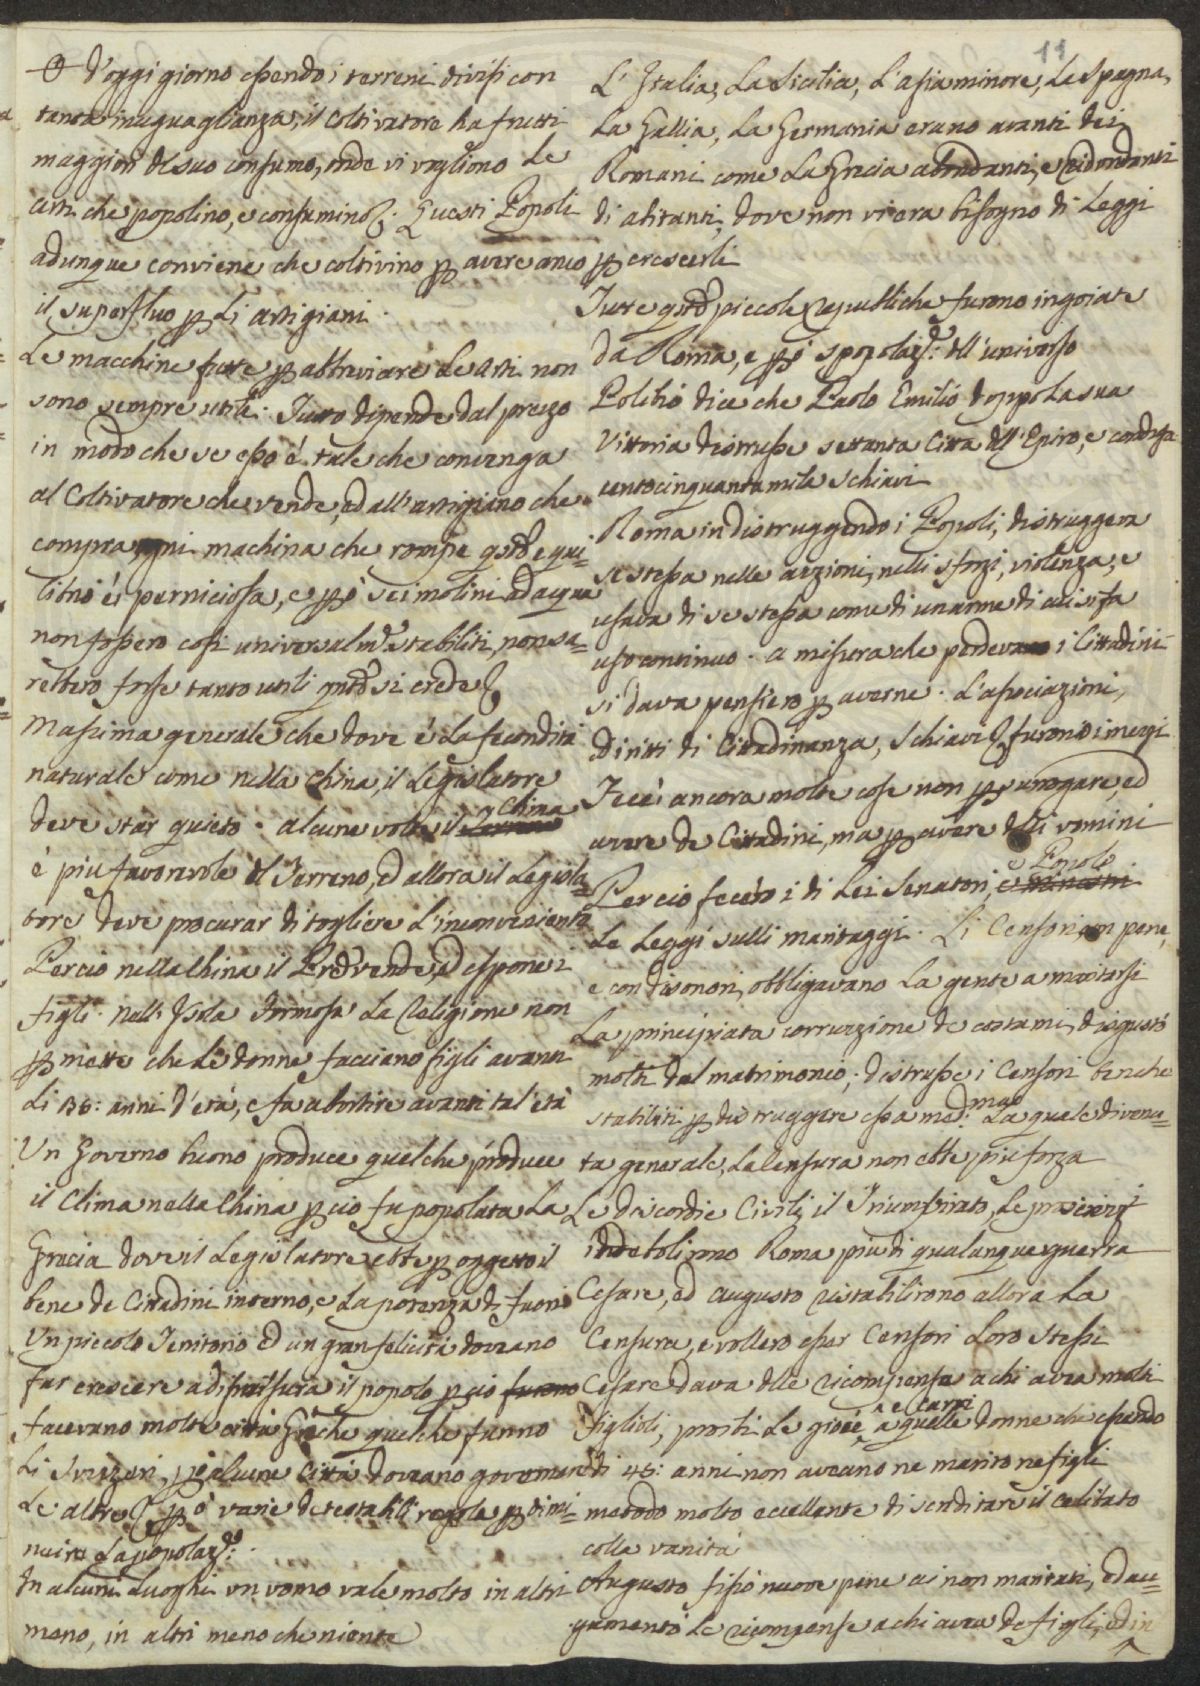 11
d'oggi giorno essendo i terreni divisi con
tanta inuguaglianza, il Coltivatore ha frutti
maggiori del suo consumo, onde vi vogliono le
arti che popolino, e consumino. Questi Popoli
adunque conviene che coltivino p avere anco
il superfluo p li artigiani.
Le macchine fatte p abbreviare le Arti non
sono sempre utili: Tutto dipende dal prezzo
in modo che se esso è tale che convenga
al Coltivatore che vende, ed all'artigiano che
compra ogni machina che rompe qsto equi=
librio è perniciosa, e pò se i molini ad acqua
non fossero così universalmte stabiliti, non sa=
rebbero forse tanto utili qnto si crede
Massima generale che dove è la fecondità
naturale come nella China, il Legislatore
deve star quieto. alcune volte il Clima
è piu favorevole del Terreno, ed allora il Legisla=
tore deve procurar di togliere l'inconveniente
Perciò nella China il Pre vende, ed espone i
figli. nell'Isola Formosa la Religione non
pmette che le donne facciano figli avanti
li 36: anni d'età, e fa abortire avanti tal'età
Un Governo buono produce quel che produce
il Clima nella China pciò fu popolata la
Grecia dove il Legislatore ebbe p oggetto il
bene de Cittadini interno, e la potenza di fuori
Un piccolo Territorio ed un gran felicità doveano
far crescere a dismisura il popolo pciò
facevano molte città Greche quel che fanno
li Svizzeri, p alcune Città doveano governare
le altre pò varie detestabili regole p dimi=
nuire la popolazne:
In alcuni luoghi un uomo vale molto in altri
meno, in altri meno che niente
L'Italia, la Sicilia, l'asia minore, la Spagna,
la Gallia, la Germania erano avanti dei
Romani come la Grecia abondanti, e ridondanti
di abitanti, dove non vi era bisogno di Leggi
p crescerli
Tutte qste piccole republiche furono ingoiate
da Roma, e pò spopolazne: dell'universo
Polibio dice che Paolo Emilio doppo la sua
Vittoria distrusse settanta Città dell'Epiro, e condusse
centocinquantamila schiavi
Roma in distruggendo i Popoli, distruggeva
se stessa nelle azzioni, nelli sforzi, violenza, e
usava di se stessa come di un arme di cui si fa
uso continuo. a misura che perdeva i Cittadini
si dava pensiero p averne. L'associazioni,
Diritti di Cittadinanza, Schiavi furono i mezzi
Fece ancora molte cose non p surrogare, ed
avere de Cittadini, ma p avere delli uomini
Perciò fecero i di Lei Senatori, e Popolo
le Leggi sulli maritaggi. Li Censori con pene,
e con disonori, obbligavano la gente a maritarsi
La principiata corruzzione de costumi, disgustò
molti dal matrimonio; distrusse i Censori benche
stabiliti p distruggere essa medma: La quale divenu=
ta generale, la Censura non ebbe piu forza
Le discordie Civili, il Triumvirato, le proscrizni
indebolirono Roma piu di qualunque guerra
Cesare, ed Augusto ristabilirono allora la
Censura, e vollero esser Censori loro stessi
Cesare dava delle ricompense a chi avea molti
Figlioli, proibì le gioie, e carri a quelle donne che essendo
di 45: anni non aveano ne marito ne figli
metodo molto eccellente di screditare il celibato
colla vanità
Augusto fissò nuove pene ai non maritati, ed au=
gumentò le ricompense a chi avea de figli, ed in